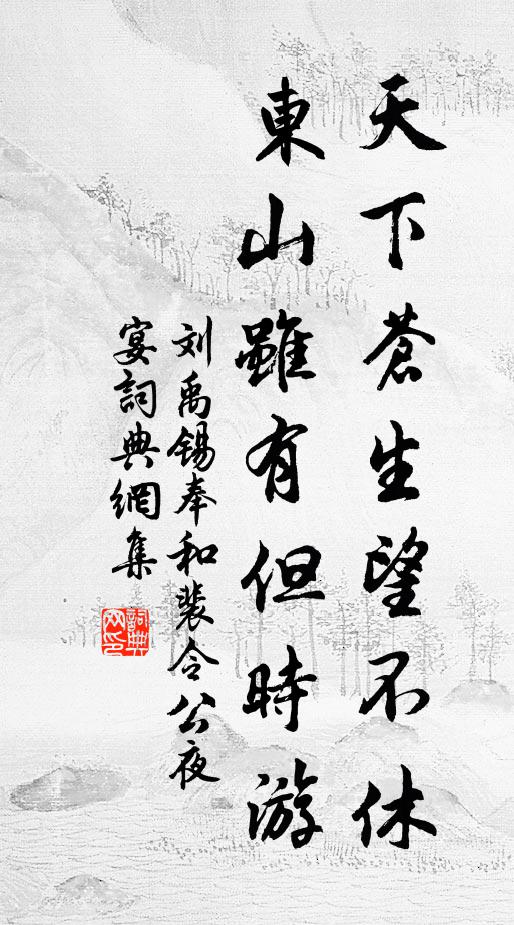 天下蒼生望不休
東山雖有但時游
刘禹锡奉和裴令公夜
宴詞典網集
詞典
网印